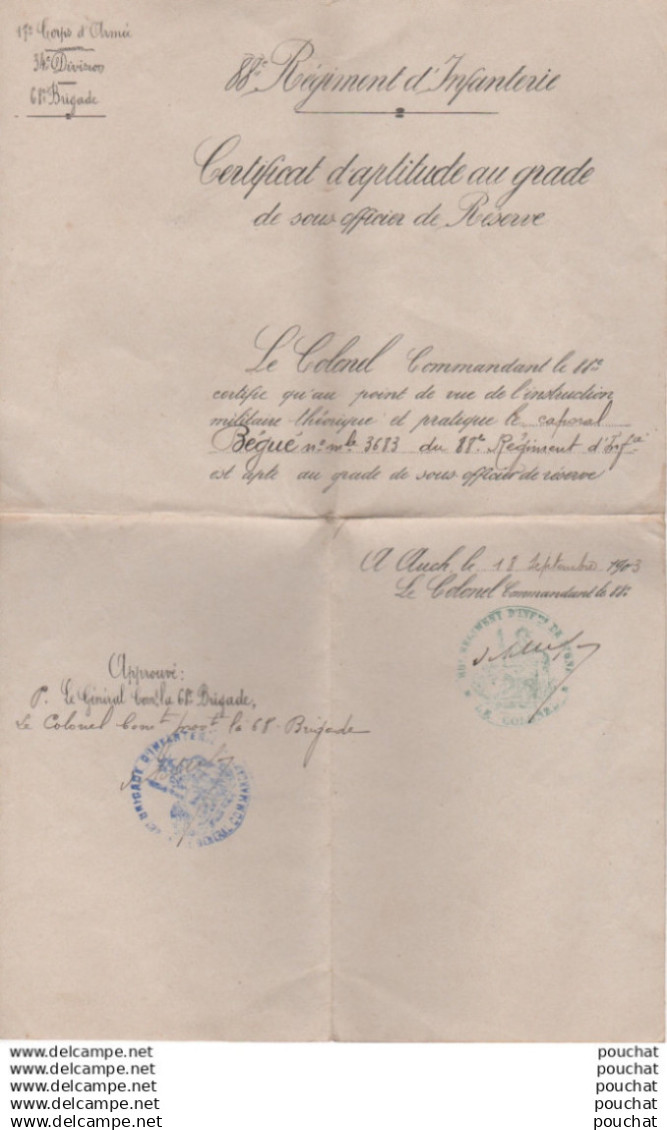 17e Corps d'Armée
34e Division
68e Brigade
88e Régiment d'Infanterie
Certificat d'aptitude au grade
de sous officier de Réserve
Le Colonel Commandant le 88e
certifie qu'au point de vue de l'instruction
militaire théorique et pratique le caporal
Bégué no mle 3683 du 88e Régiment d'Infie
est apte au grade de sous officier de réserve
A Auch, le 18 Septembre 1903
Le Colonel Commandant le 88e
Approuvé:
P. Le Général Comt la 68e Brigade,
Le Colonel Comt provt la 68e Brigade
BRIGADE D'INFANTERIE
COMMANDANT
REGIMENT D'INFIE DE
LE COLONEL
www.delcampe.net
www.delcampe.net
www.delcampe.net
www.delcampe.net
www.delcampe.net
pouchat
pouchat
pouchat
pouchat
pouchat